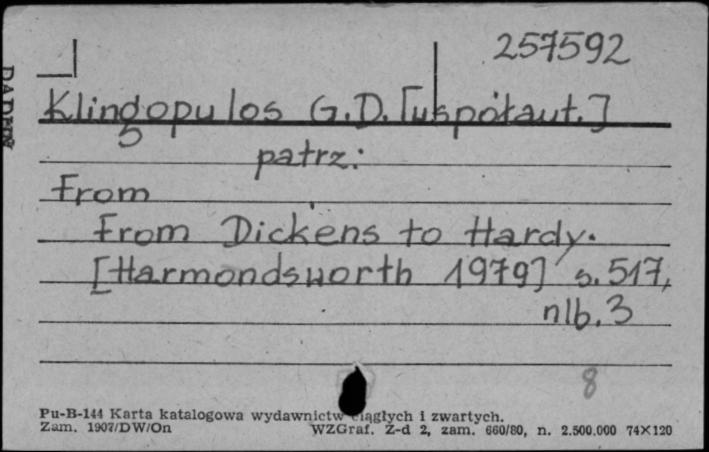 257592
Klingopulos G.D. [współaut.]
patrz:
From
From Dickens to Hardy.
[Harmondsworth 1979] s. 517,
nlb. 3
8
Pu-B-144 Karta katalogowa wydawnictw ciągłych i zwartych.
Zam. 1907/DW/On WZGraf. Z-d 2, zam. 660/80, n. 2.500.000 74×120